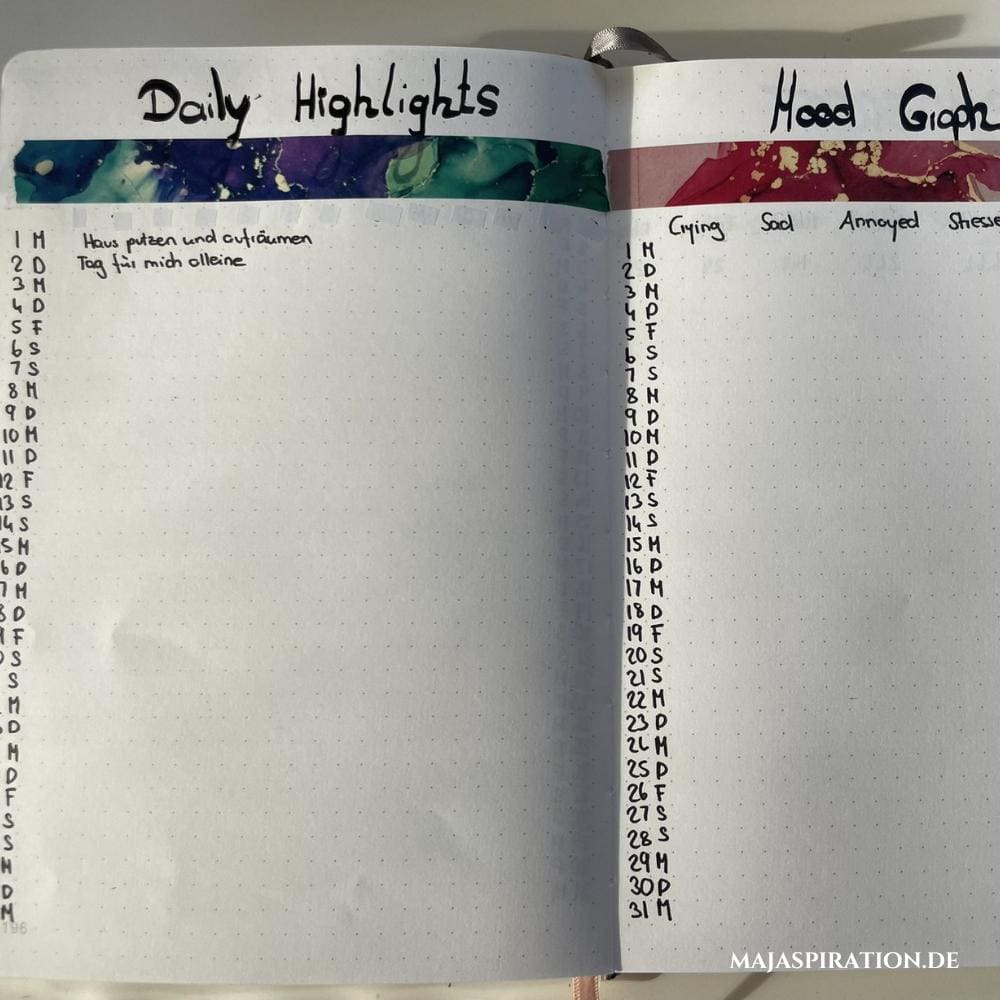 Daily Highlights
1 M Haus putzen und aufräumen
2 D Tag für mich alleine
3 M
4 D
5 F
6 S
7 S
8 M
9 D
10 M
11 D
12 F
13 S
14 S
15 M
6 D
7 M
8 D
9 F
0 S
S
M
D
M
D
F
S
S
M
D
M
196
Mood Graph
Crying Sad Annoyed Stresse
1 M
2 D
3 M
4 D
5 F
6 S
7 S
8 M
9 D
10 M
11 D
12 F
13 S
14 S
15 M
16 D
17 M
18 D
19 F
20 S
21 S
22 M
23 D
24 M
25 D
26 F
27 S
28 S
29 M
30 D
31 M
MAJASPIRATION.DE